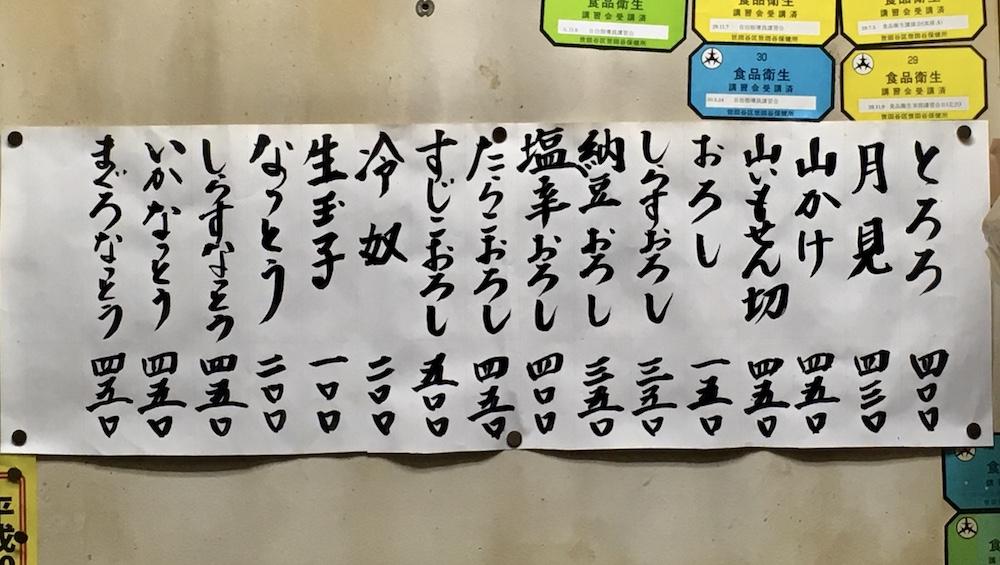 とろろ 四〇〇
月見 四三〇
山かけ 四五〇
山いもせん切 四五〇
おろし 一五〇
しらすおろし 三五〇
納豆おろし 三五〇
塩辛おろし 四〇〇
たらこおろし 四五〇
すじこおろし 五〇〇
冷奴 二〇〇
生玉子 一〇〇
なっとう 二〇〇
しらすなっとう 四五〇
いかなっとう 四五〇
まぐろなっとう 四五〇
食品衛生
講習会受講済
世田谷区世田谷保健所
食品衛生
講習会受講済
世田谷区世田谷保健所
食品衛生
講習会受講済
世田谷区世田谷保健所
30
食品衛生
講習会受講済
世田谷区世田谷保健所
29
食品衛生
講習会受講済
世田谷区世田谷保健所
平成